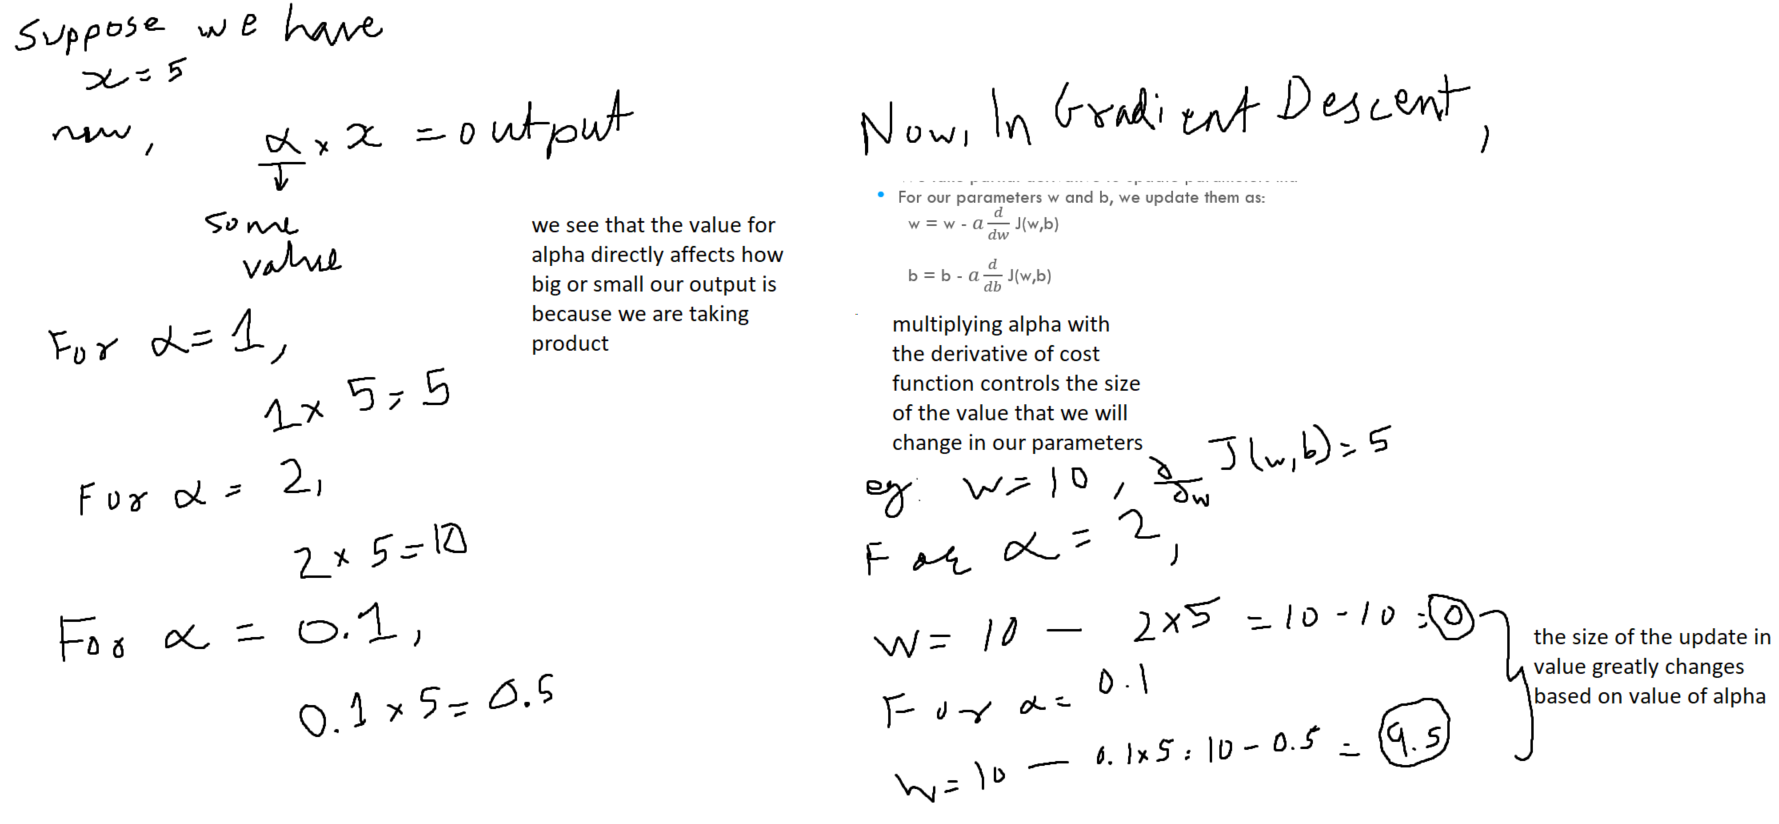 Suppose we have
x = 5
now,
α × x = output
some
value
we see that the value for
alpha directly affects how
big or small our output is
because we are taking
product
For α = 1,
1 × 5 = 5
For α = 2,
2 × 5 = 10
For α = 0.1,
0.1 × 5 = 0.5
Now, In Gradient Descent,
• For our parameters w and b, we update them as:
w = w - a d/dw J(w,b)
b = b - a d/db J(w,b)
multiplying alpha with
the derivative of cost
function controls the size
of the value that we will
change in our parameters
eg: w = 10, ∂/∂w J(w,b) = 5
For α = 2,
w = 10 - 2×5 = 10 - 10 = 0
For α = 0.1
w = 10 - 0.1×5 = 10 - 0.5 = 9.5
the size of the update in
value greatly changes
based on value of alpha